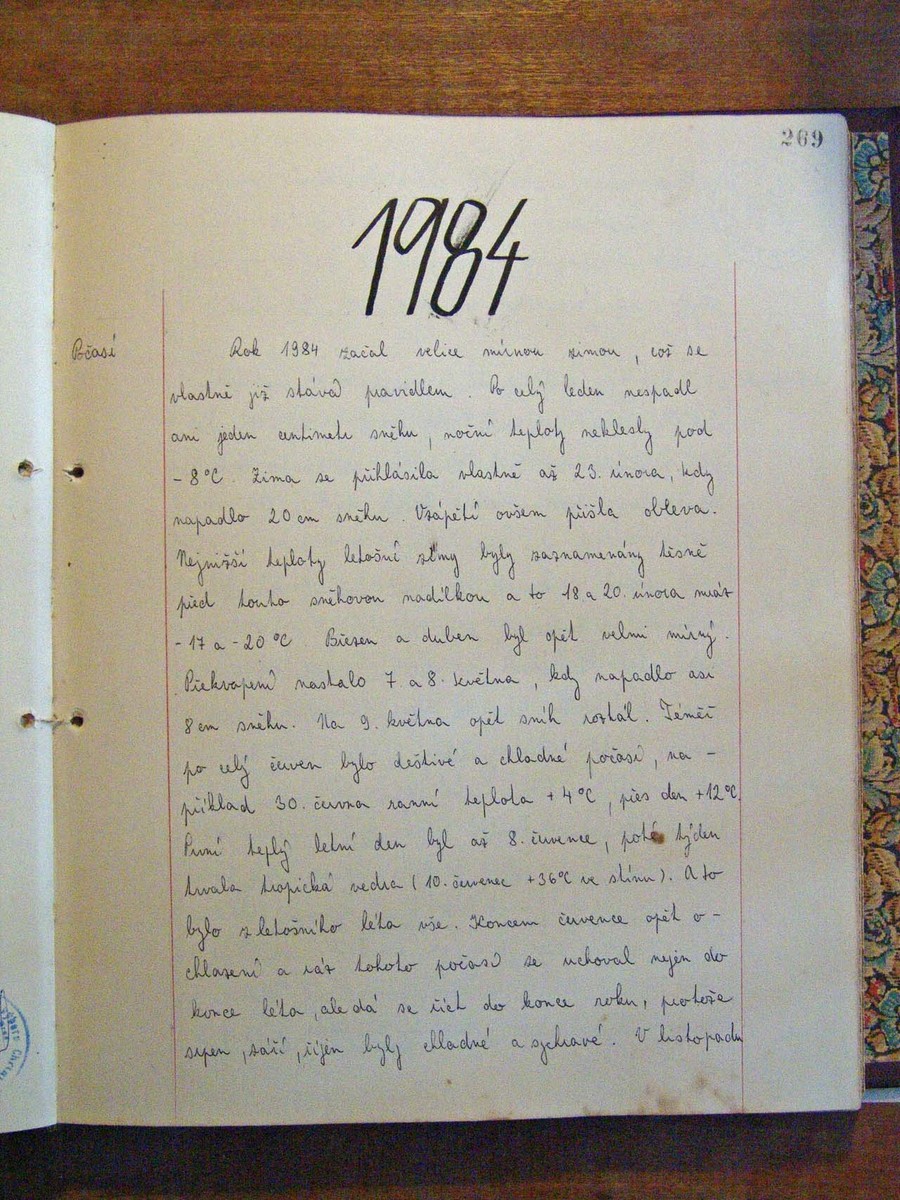 269
1984
Počasí
Rok 1984 začal velice mírnou zimou, což se
vlastně již stává pravidlem. Po celý leden nespadl
ani jeden centimetr sněhu, noční teploty neklesly pod
- 8°C. Zima se přihlásila vlastně až 23. února, kdy
napadlo 20 cm sněhu. Vzápětí ovšem přišla obleva.
Nejnižší teploty letošní zimy byly zaznamenány těsně
před touto sněhovou nadílkou a to 18 a 20. února mráz
-17 a -20°C Březen a duben byl opět velmi mírný.
Překvapení nastalo 7 a 8. května, kdy napadlo asi
8 cm sněhu. Na 9. května opět sníh roztál. Téměř
po celý červen bylo deštivé a chladné počasí, na -
příklad 30. června ranní teplota +4°C, přes den +12°C.
První teplý letní den byl až 8. července, poté týden
trvala tropická vedra (10. červenec +36°C ve stínu). A to
bylo z letošního léta vše. Koncem července opět o -
chlazení a ráz tohoto počasí se uchoval nejen do
konce léta, ale dá se říct do konce roku, protože
srpen, září, říjen byly chladné a sychravé. V listopadu